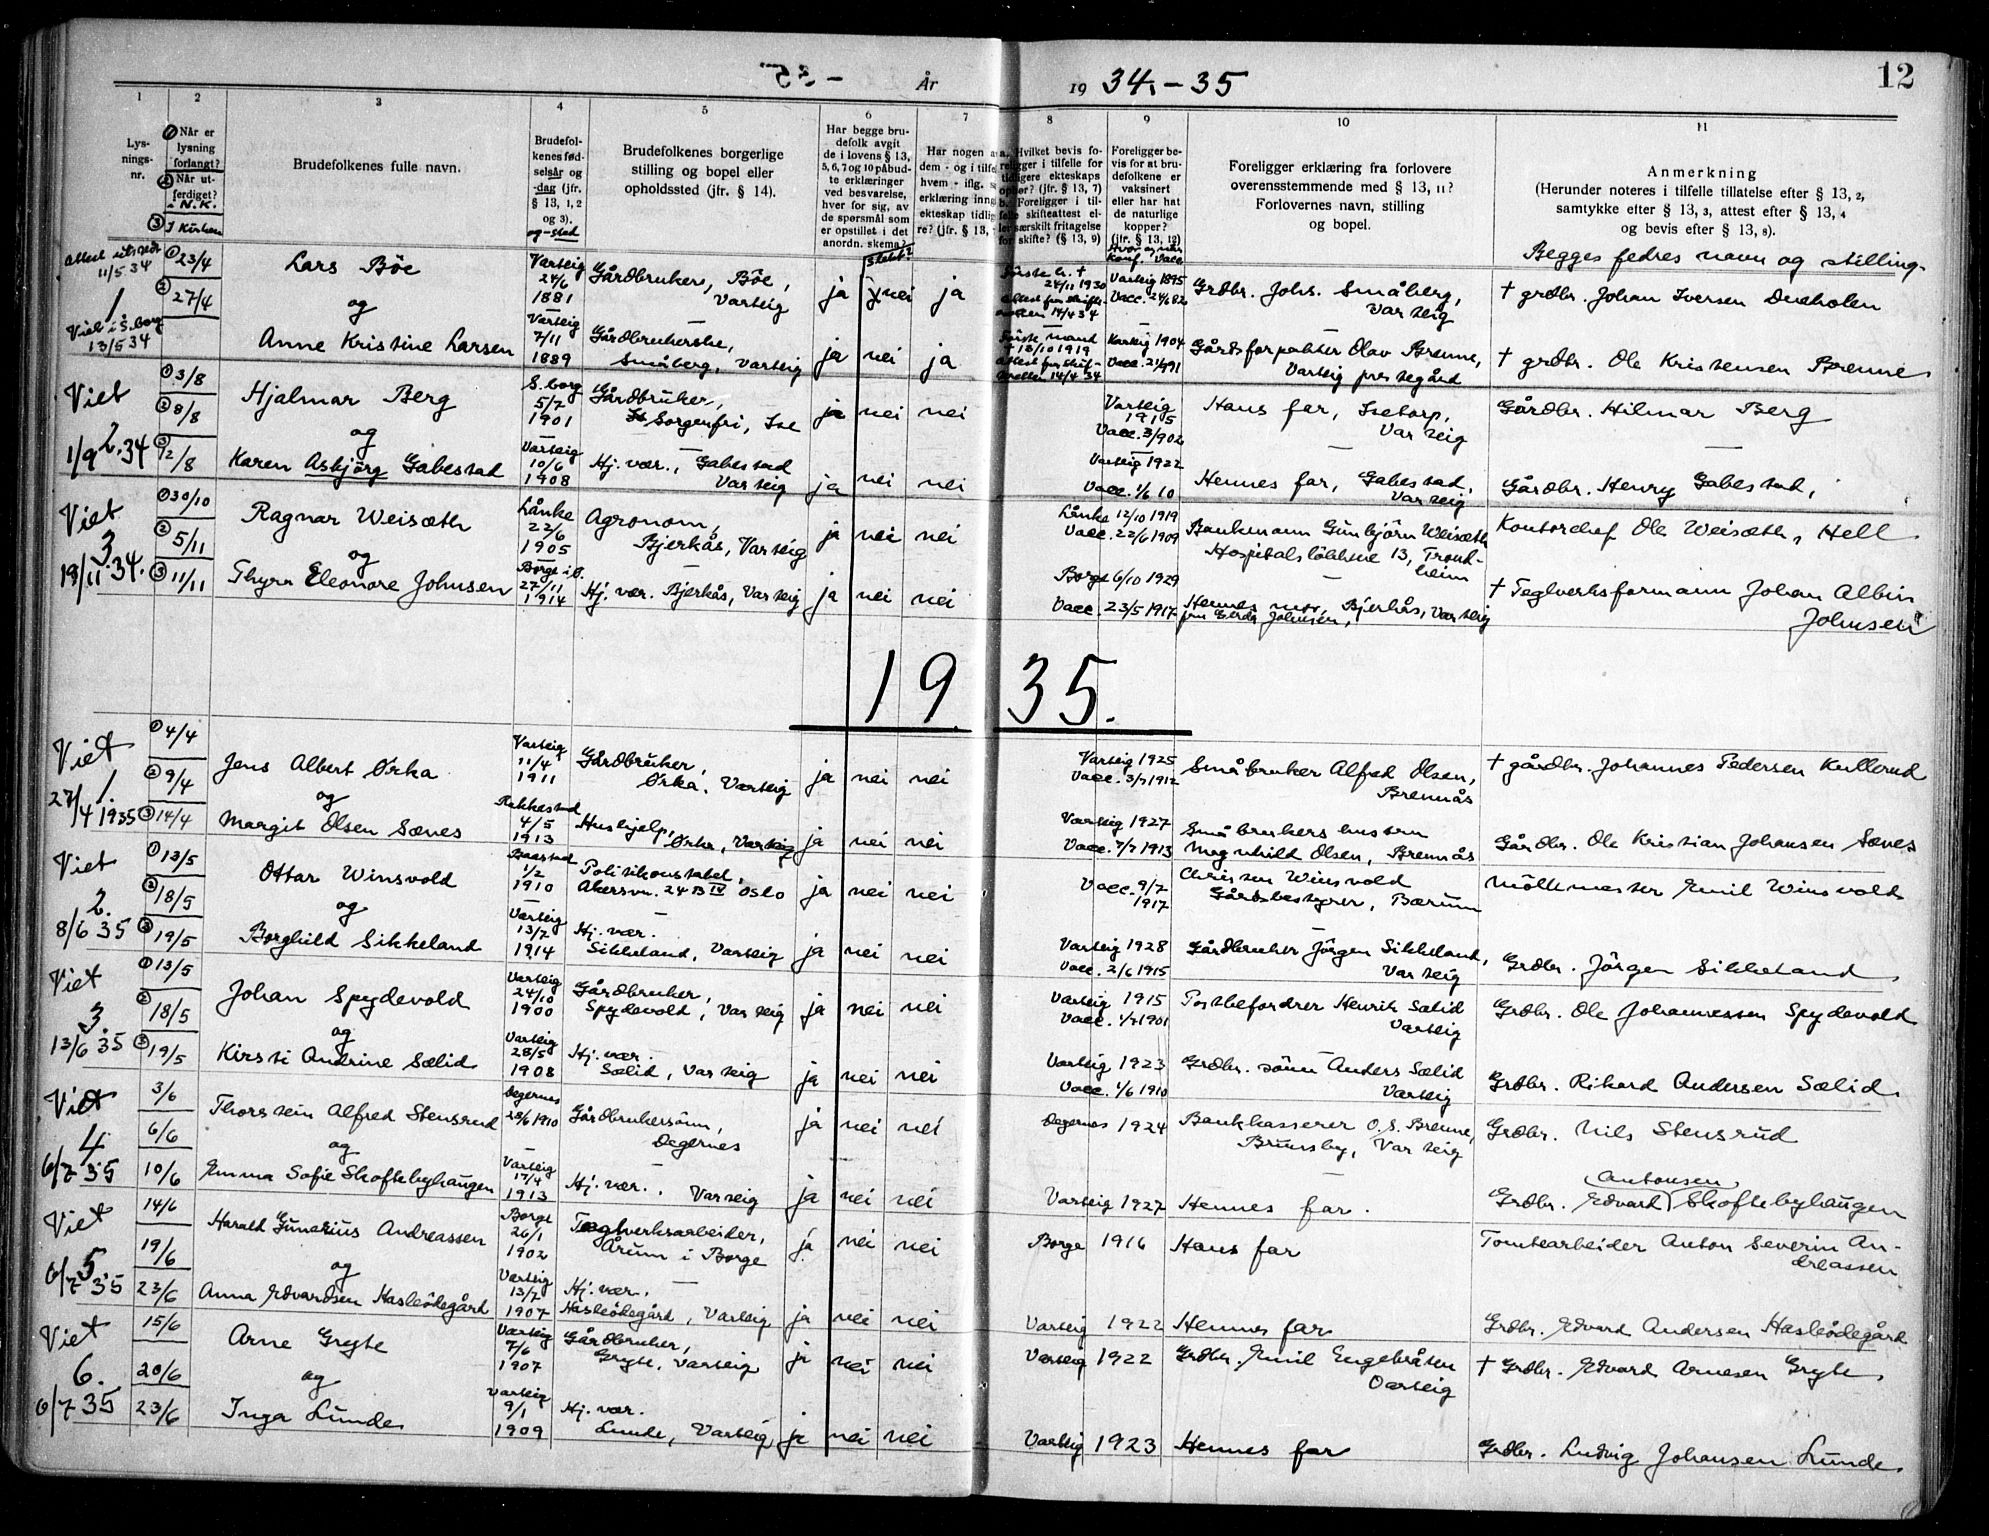 År 19 34.-35
12
1 2 3 4 5 6 7 8 9 10 11
Lys-
nings-
nr.
① Når er
lysning
forlangt?
② Når ut-
ferdiget?
i N.K.
③ I Kirken
Brudefolkenes fulle navn.
Brudefol-
kenes fød-
selsår og
-dag (jfr.
§ 13, 1, 2
og 3).
og -sted
Brudefolkenes borgerlige
stilling og bopel eller
opholdssted (jfr. § 14).
Har begge bru-
defolk avgit
de i lovens § 13,
5, 6, 7 og 10 påbud-
te erklæringer
ved besvarelse,
hver for sig, av
de spørsmål som
er opstillet i det
anordn. skema?
slekt?
Har nogen a
dem - og i tilfe
hvem - iflg. s
erklæring inng
ekteskap tidlig
re? (jfr. § 13,
a. Hvilket bevis fo-
religger i tilfelle for
tidligere ekteskaps
ophør? (jfr. § 13, 7)
b. Foreligger i til-
felle skifteattest el-
ler særskilt fritagelse
for skifte? (§ 13, 9)
Foreligger be-
vis for at bru-
defolkene er
vaksinert
eller har hat
de naturlige
kopper?
(jfr. § 13, 12)
Hvor og når
konf. Vacc.
Foreligger erklæring fra forlovere
overensstemmende med § 13, 11?
Forlovernes navn, stilling
og bopel.
Anmerkning
(Herunder noteres i tilfelle tillatelse efter § 13, 2,
samtykke efter § 13, 3, attest efter § 13, 4
og bevis efter § 13, 8).
Begges fedres navn og stilling.
Attest utstedt
11/5 34
1
Viet i S.borg
13/5 34
① 23/4
② 27/4
Lars Böe
og
Anne Kristine Larsen
Varteig
24/6
1881
Varteig
7/11
1889
Gårdbruker, Böe,
Varteig
Gårdbrukerske,
Småberg, Varteig
ja nei ja
ja nei ja
Første h. †
24/11 1930
Attest fra skifte-
retten 14/4 34
Første mand
† 13/10 1919
Attest fra skif-
teretten 14/4 34
Varteig 1895
Vacc. 24/6 82
Varteig 1904
Vacc. 21/9 91
Grdbr. Johs. Småberg,
Varteig
Gårdsforpakter Olav Brenne,
Varteig prestegård
† grdbr. Johan Iversen
† grdbr. Ole Kristensen Brenne
Viet
2.
1/9 34
① 3/8
② 8/8
③ 12/8
Hjalmar Berg
og
Karen Asbjörg Gabestad
S.borg
5/7
1901
Varteig
10/6
1908
Gårdbruker,
Sorgenfri, Ise
Hj. vær., Gabestad
Varteig
ja nei nei
ja nei nei
Varteig
1915
Vacc. 3/9 02
Varteig 1922
Vacc. 1/6 10
Hans far, Isetorp,
Varteig
Hennes far, Gabestad,
Varteig
Gårdbr. Hilmar Berg
Gårdbr. Henry Gabestad,
Viet
3.
18/11 34.
① 30/10
② 5/11
③ 11/11
Ragnar Weisæth
og
Thyra Eleonore Johnsen
Lånke
22/6
1905
Borge i Ö.
27/11
1914
Agronom,
Bjerkås, Varteig
Hj. vær. Bjerkås, Varteig
ja nei nei
ja nei nei
Lånke 12/10 1919
Vacc. 22/6 1909
Borge 6/10 1929
Vacc. 23/5 1917
Bankmann Gunbjörn Weisæth
Hospitalslökkene 13, Trond-
heim
Hennes mor, Bjerkås, Varteig
fru Gerda Johnsen,
Kontorchef Ole Weisæth, Hell
† Teglverksformann Johan Albin
Johnsen
1935.
Viet
1.
27/4 1935
① 4/4
② 9/4
③ 14/4
Jens Albert Ørka
og
Margit Olsen Sænes
Varteig
11/4
1911
Rakkestad
4/5
1913
Gårdbruker,
Ørka, Varteig
Hushjelp,
Ørka, Varteig
ja nei nei
ja nei nei
Varteig 1925
Vacc. 3/7 1912
Varteig 1927
Vacc. 7/7 1913
Småbruker Alfred Olsen,
Brennås
Småbrukers hustru
Magnhild Olsen, Brennås
† gårdbr. Johannes Pedersen Kullerud
Gårdbr. Ole Kristian Johansen Sænes
Viet
2.
8/6 35
① 13/5
② 18/5
③ 19/5
Ottar Winsvold
og
Borghild Sikkeland
Baastad
1/2
1910
Varteig
13/7
1914
Politikonstabel,
Akersvn. 24 B IV Oslo
Hj. vær.
Sikkeland, Varteig
ja nei nei
ja nei nei
Vacc. 9/7
1917
Varteig 1928
Vacc. 2/6 1915
Christen Winsvold
Gårdsbestyrer, Bærum
Gårdbruker Jörgen Sikkeland,
Varteig
Möllemester Emil Winsvold
Grdbr. Jörgen Sikkeland
Viet
3.
13/6 35
① 13/5
② 18/5
③ 19/5
Johan Spydevold
og
Kirsti Andrine Sælid
Varteig
24/10
1900
Varteig
28/5
1908
Gårdbruker,
Spydevold, Varteig
Hj. vær.
Sælid, Varteig
ja nei nei
ja nei nei
Varteig 1915
Vacc. 1/7 1901
Varteig 1923
Vacc. 1/6 1910
Postbefordrer Henrik Sælid
Varteig
Grdbr. sönn Anders Sælid
Varteig
Grdbr. Ole Johannessen Spydevold
Grdbr. Rikard Andersen Sælid
Viet
4
6/7 35
3/6
6/6
10/6
Thorstein Alfred Stensrud
og
Emma Sofie Skoftebyhaugen
Degernes
28/6 1910
Varteig
17/4
1913
Gårdbrukersönn,
Degernes
Hj. vær., Varteig
ja nei nei
ja nei nei
Degernes 1924
Varteig 1927
Bankkasserer O. S. Brenne,
Brunsby, Varteig
Hennes far.
Grdbr. Nils Stensrud
Antonsen
Grdbr. Edvard Skoftebyhaugen
Viet
5.
6/7 35
14/6
19/6
23/6
Harald Gunarius Andreassen
og
Anna Edvardsen Hasleödegård
Borge
26/1
1902
Varteig
13/7
1907
Teglverksarbeider,
Årum i Borge
Hj. vær.
Hasleödegård, Varteig
ja nei nei
ja nei nei
Borge 1916
Varteig 1922
Hans far
Hennes far
Tomtearbeider Anton Severin An-
dreassen
Grdbr. Edvard Andersen Hasleödegård
Viet
6.
6/7 35
15/6
20/6
23/6
Arne Gryte
og
Inga Lunde
Varteig
7/6
1907
Varteig
9/1
1909
Gårdbruker,
Gryte, Varteig
Hj. vær.
Lunde, Varteig
ja nei nei
ja nei nei
Varteig 1922
Varteig 1923
Grdbr. Emil Engebråten
Varteig
Hennes far
† Grdbr. Edvard Arnesen Gryte
Grdbr. Ludvig Johansen Lunde